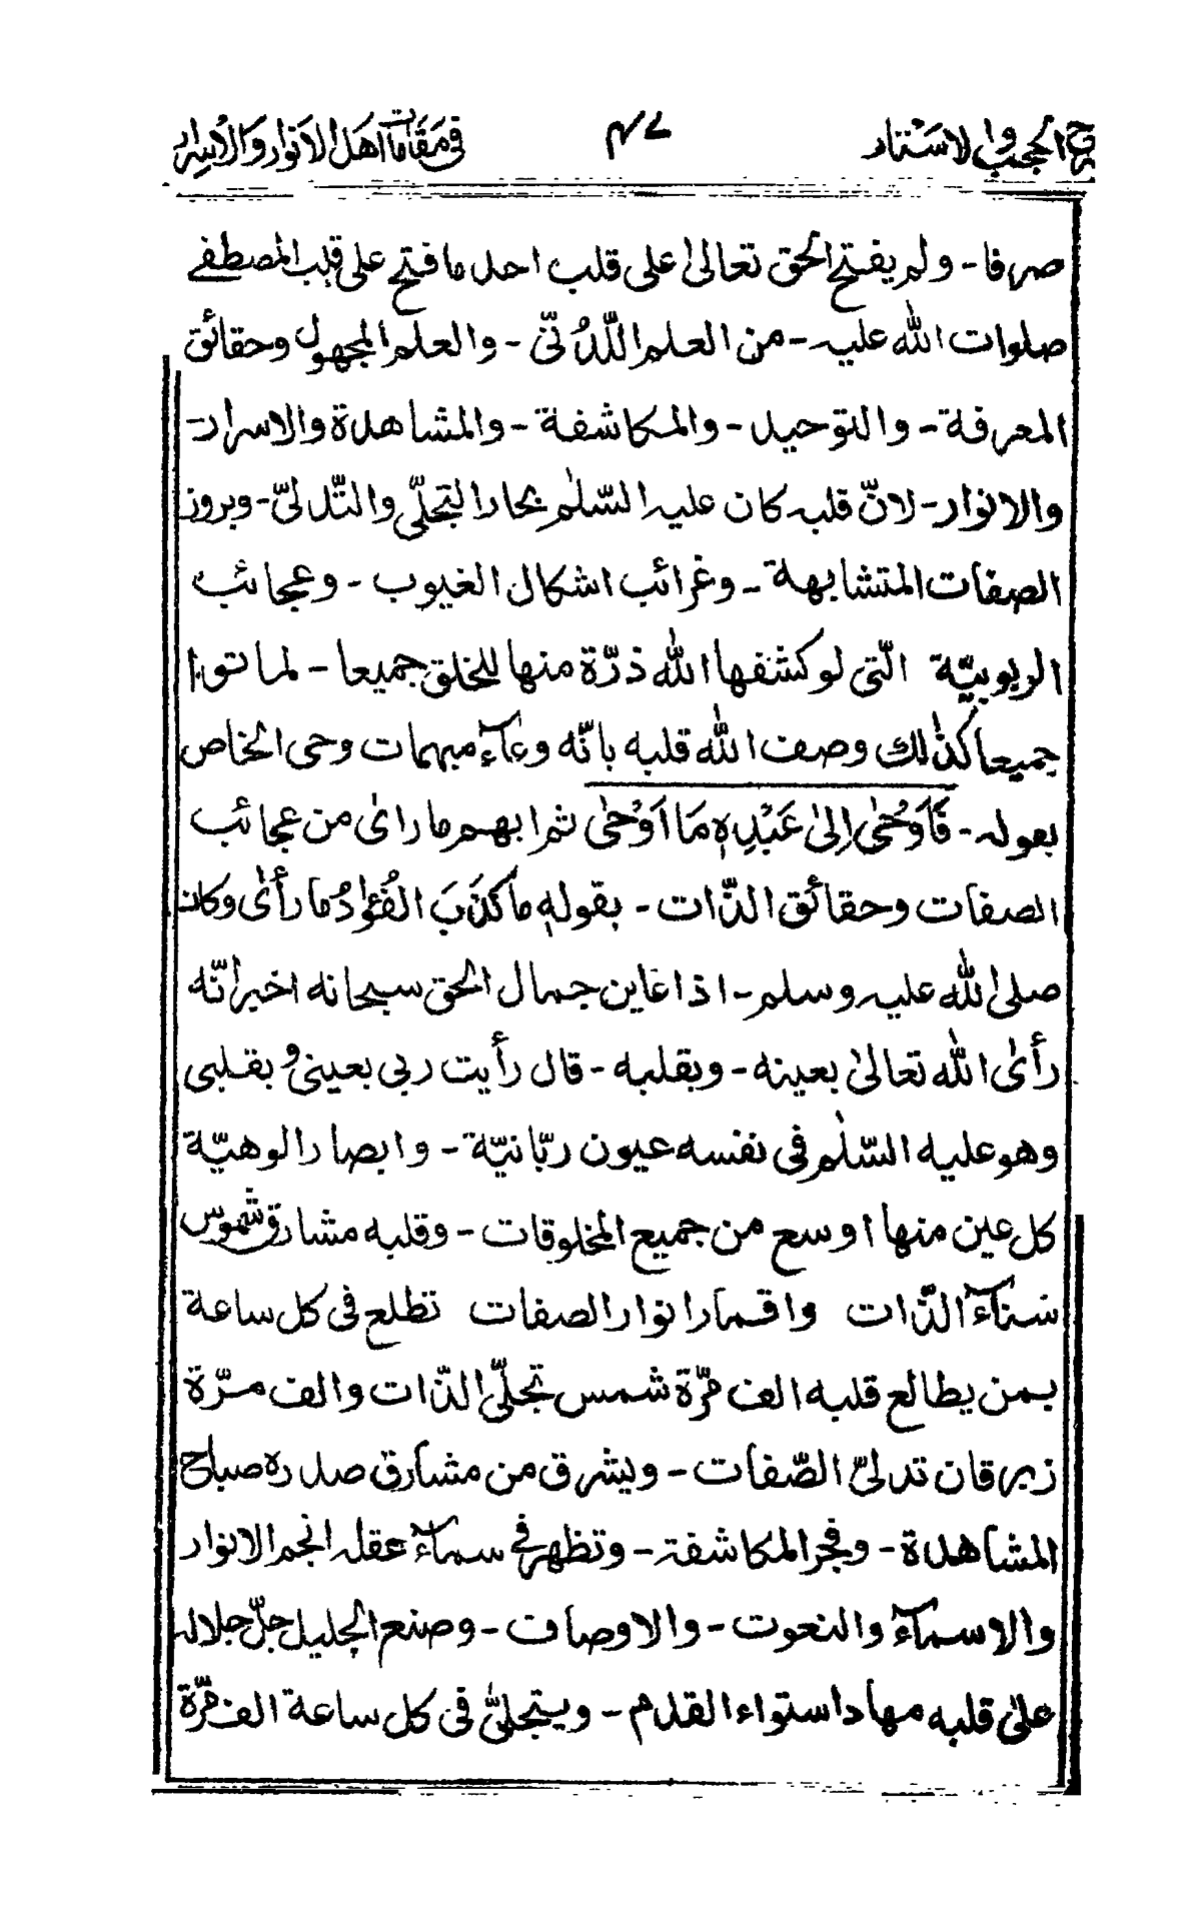 الحجب والاستتار ٤٧ في مقامات اهل الانوار والاسرار
صرفا - ولم يفتح الحق تعالىٰ على قلب احد ما فتح على قلب المصطفے
صلوات الله عليه - من العلم اللّدُنّيّ - والعلم المجهول وحقائق
المعرفة - والتوحيد - والمكاشفة - والمشاهدة والاسرار -
والانوار - لانّ قلبه كان عليه السّلٰم بحار التجلّي والتّدليّ - وبروز
الصفات المتشابهة - وغرائب اشكال الغيوب - وعجائب
الربوبيّة التّي لو كشفها الله ذرّة منها للخلق جميعا - لماتوا
جميعا كذٰلك وصف الله قلبه بانّه وعآء مبهمات وحي الخاص
بعوله - فَاَوْحٰى اِلىٰ عَبْدِهٖ مَا اَوْحٰى ثم ابهم ما راىٰ من عجائب
الصفات وحقائق الذّات - بقولهٖ ما كَذَبَ الفُؤادُ ما رأىٰ وكان
صلى الله عليه وسلم - اذا عاين جمال الحق سبحانه اخبر انّه
رأىٰ الله تعالىٰ بعينه - وبقلبه - قال رأيت ربي بعيني وبقلبي
وهو عليه السّلٰم في نفسه عيون ربّانيّة - وابصار الوهيّة
كل عين منها اوسع من جميع المخلوقات - وقلبه مشارق شموس
سنآء الذّات واقمار انوار الصفات تطلع في كل ساعة
بمن يطالع قلبه الف مرّة شمس تجلّي الذّات والف مرّة
زبرقان تدليّ الصّفات - ويشرق من مشارق صدره صباح
المشاهدة - وفجر المكاشفة - وتظهر في سمآء عقله انجم الانوار
والاسمآء والنعوت - والاوصاف - وصنع الجليل جلّ جلاله
علىٰ قلبه مهاد استواء القدم - ويتجلىّ في كل ساعة الف مرّة